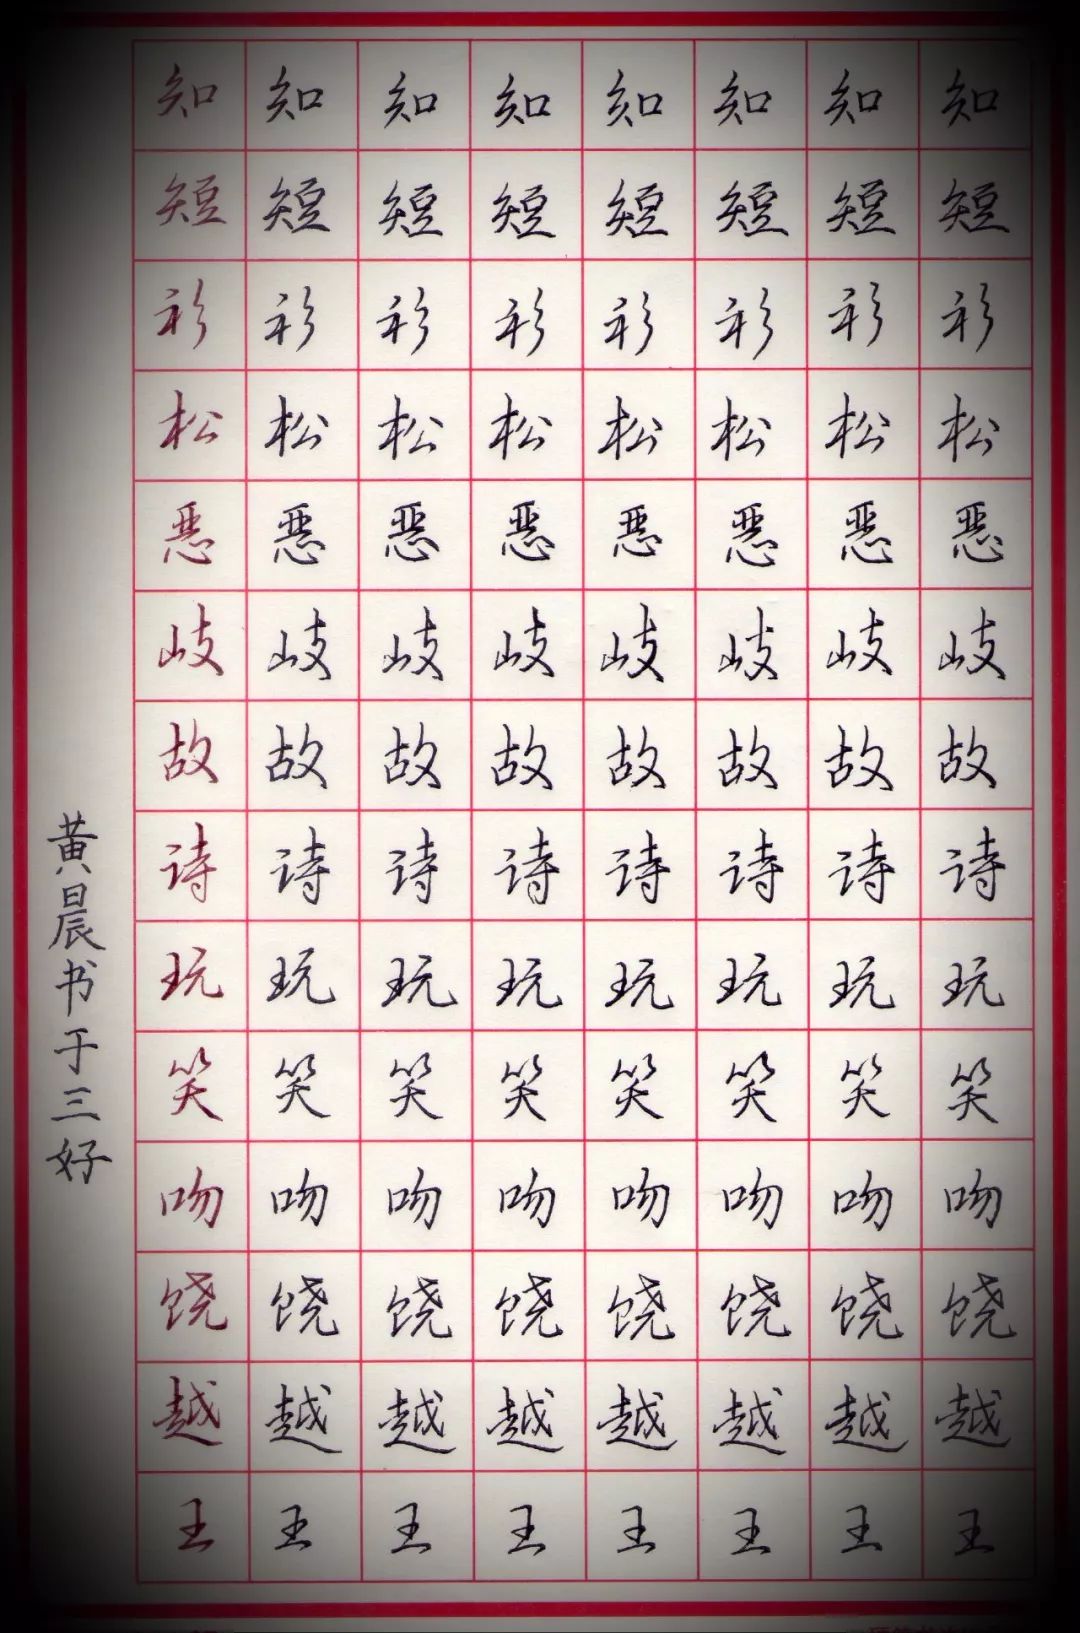 知知知知知知知知
短短短短短短短短
衫衫衫衫衫衫衫衫
松松松松松松松松
恶恶恶恶恶恶恶恶
岐岐岐岐岐岐岐岐
故故故故故故故故
诗诗诗诗诗诗诗诗
玩玩玩玩玩玩玩玩
笑笑笑笑笑笑笑笑
吻吻吻吻吻吻吻吻
饶饶饶饶饶饶饶饶
越越越越越越越越
王王王王王王王王
黄晨书于三好